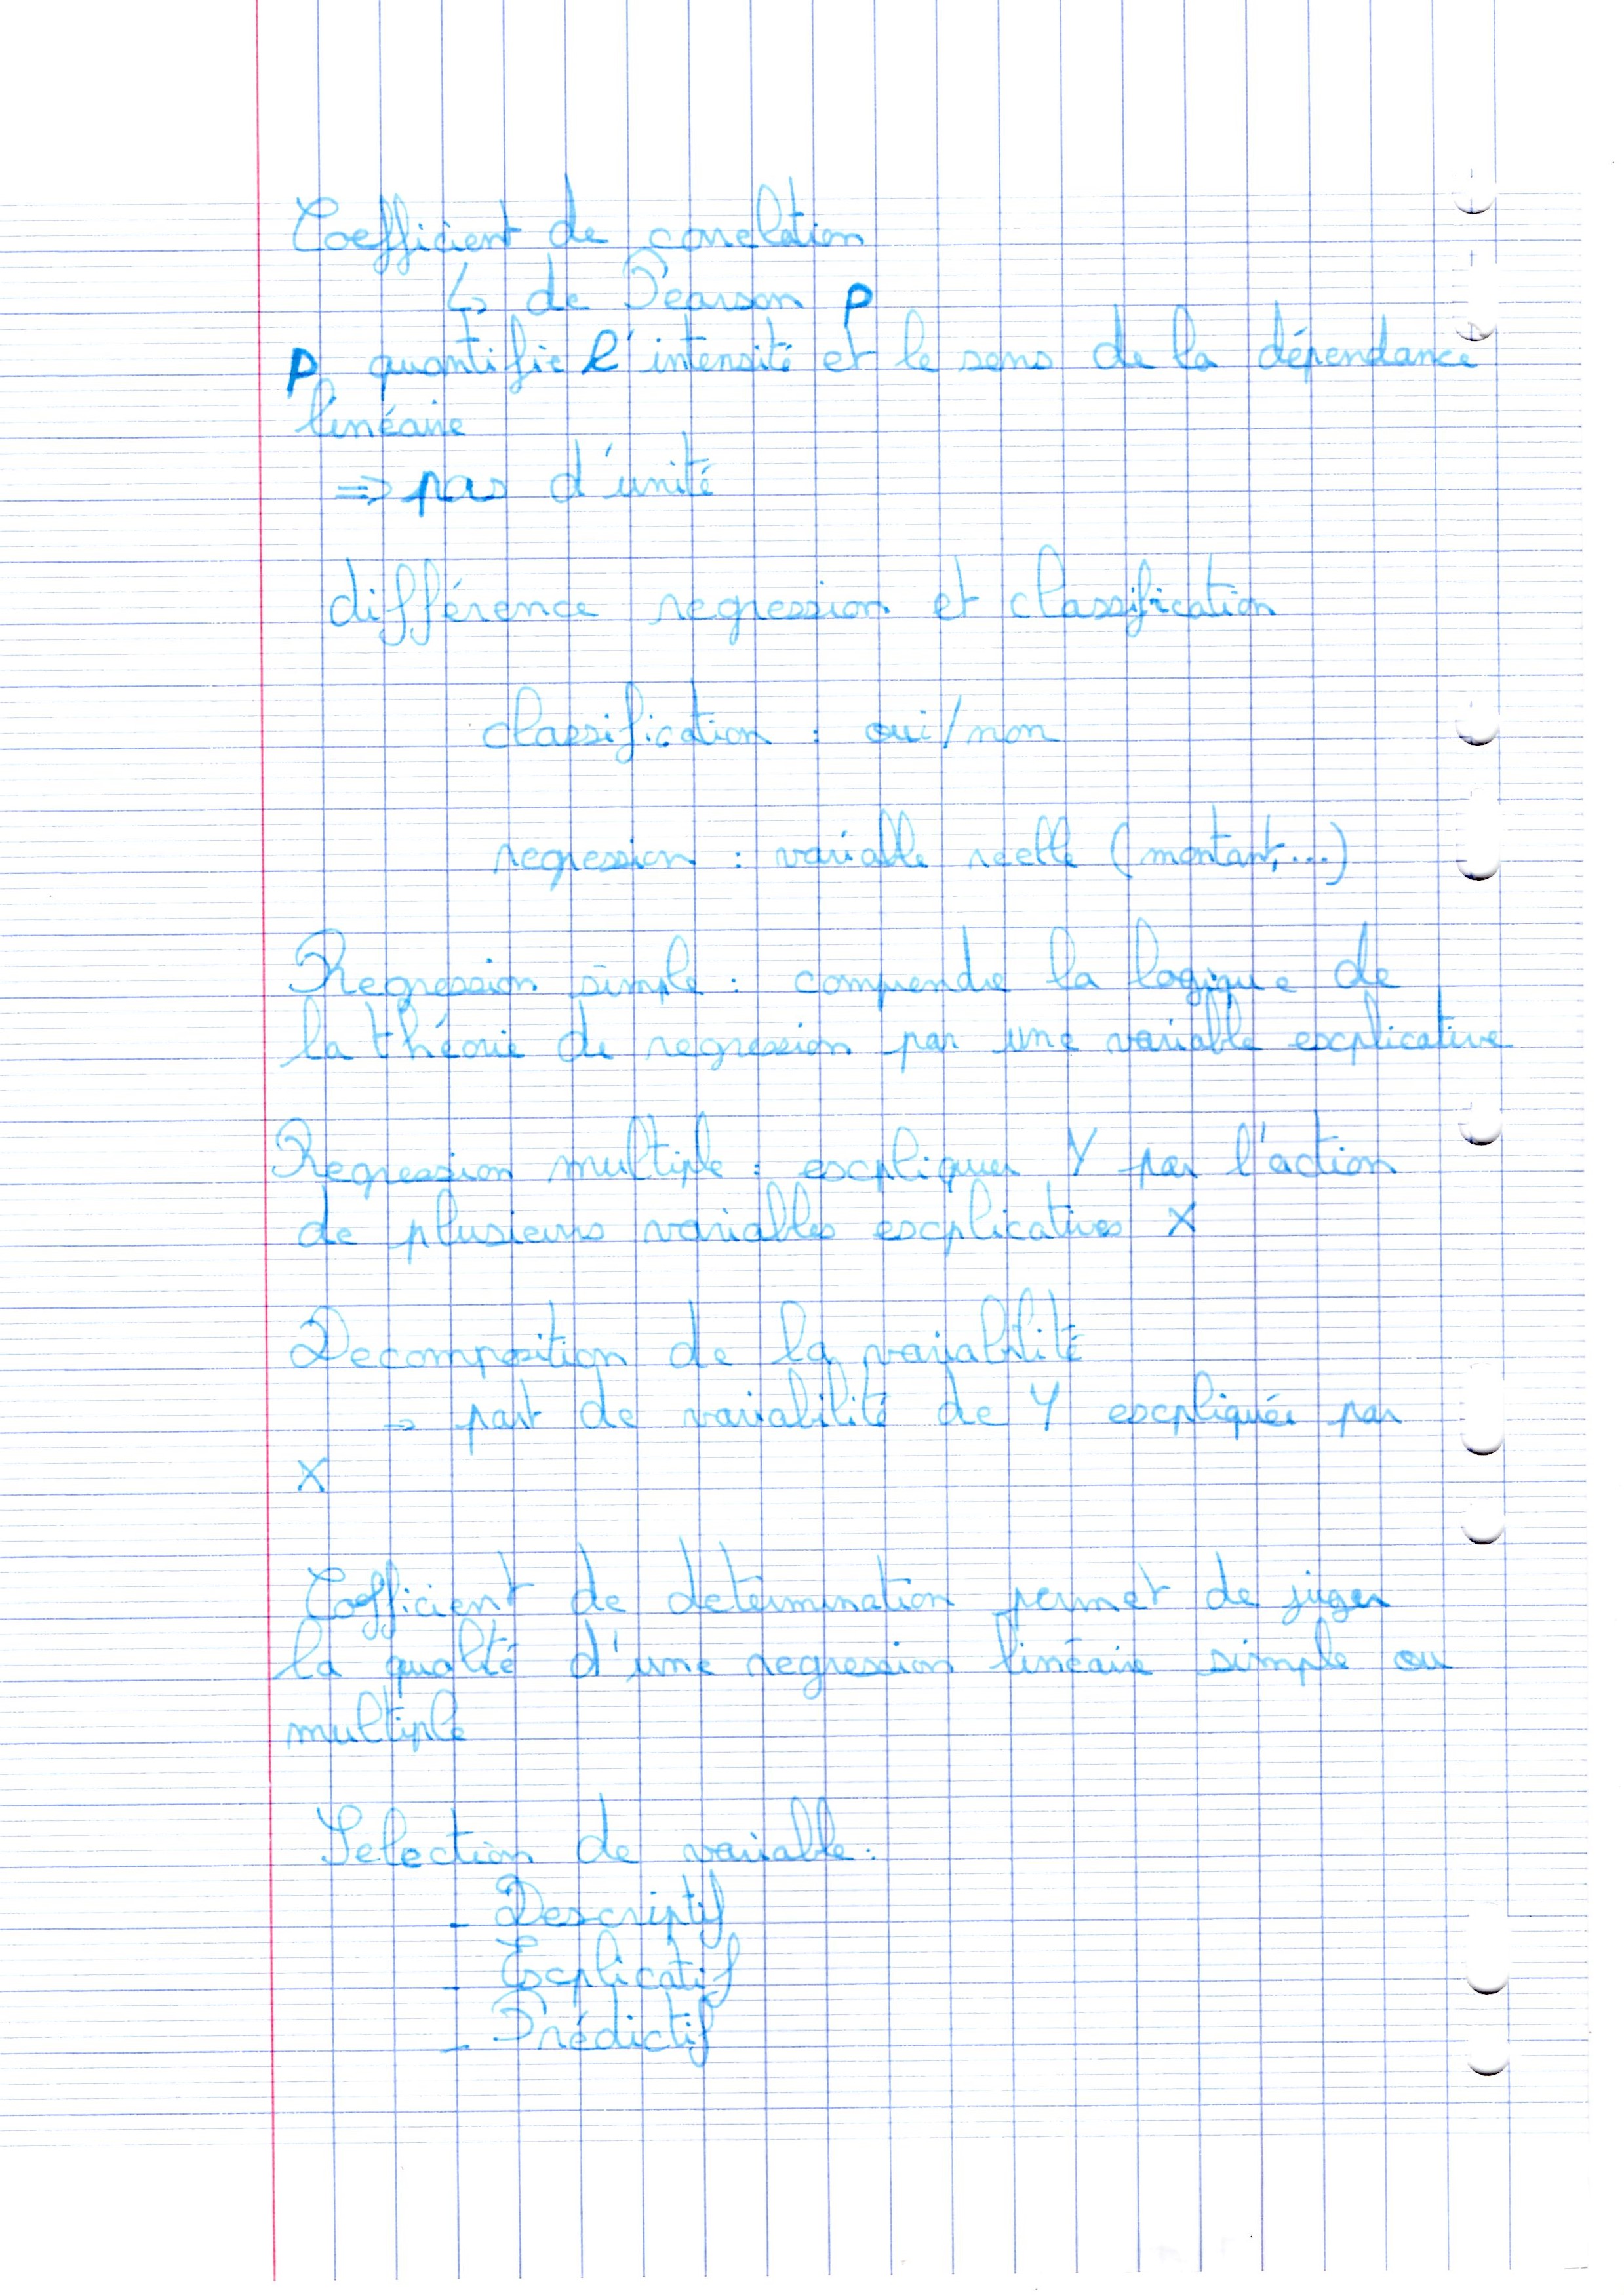 Coefficient de correlation
↳ de Pearson ρ
ρ quantifie l'intensité et le sens de la dépendance
linéaire
=> pas d'unité
différence regression et classification
classification : oui/non
regression : variable reelle (montant,...)
Regression simple : comprendre la logique de
la théorie de regression par une variable explicative
Regression multiple : expliquer Y par l'action
de plusieurs variables explicatives X
Decomposition de la variabilité
→ part de variabilité de Y expliquée par
X
Cofficient de determination permet de juger
la qualité d'une regression linéaire simple ou
multiple
Selection de variable :
- Descriptif
- Explicatif
- Prédictif